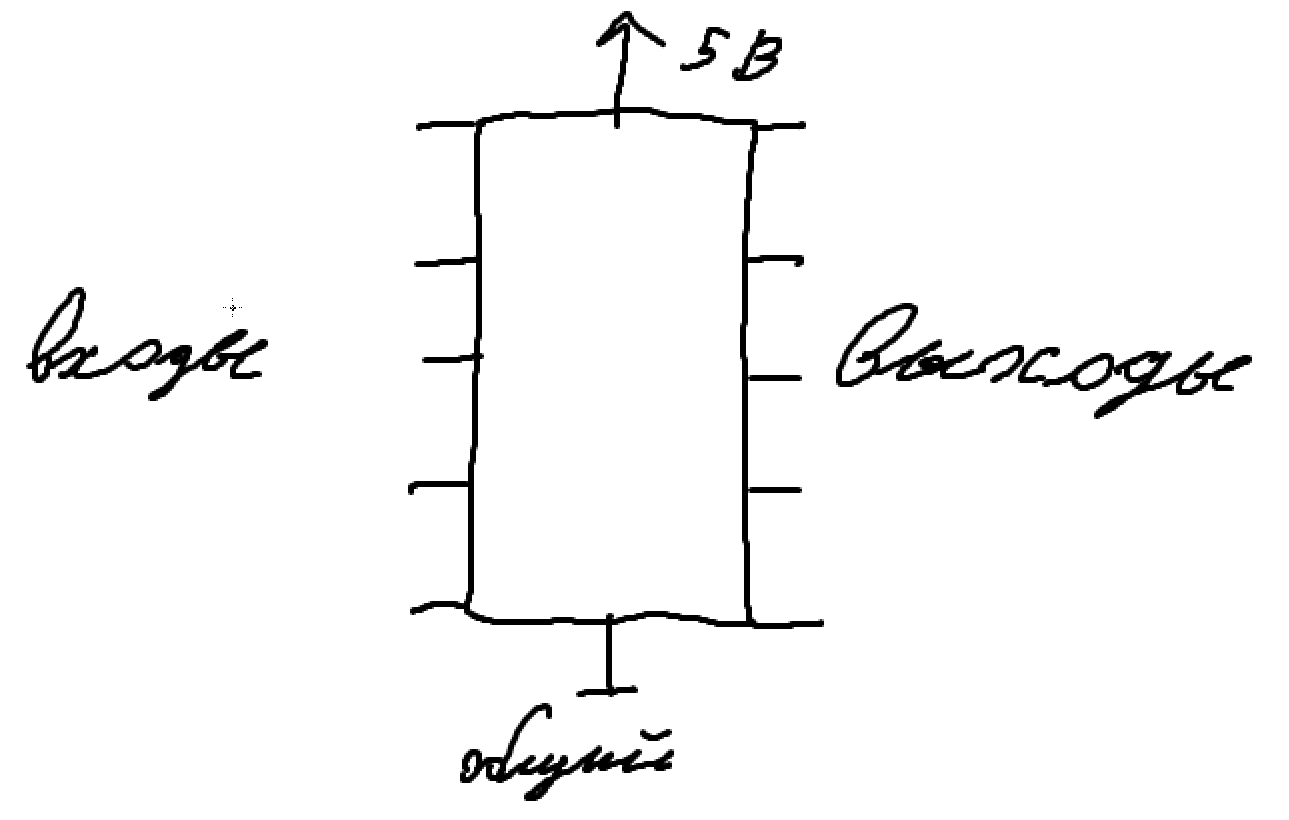 5 В
входы
выходы
общий